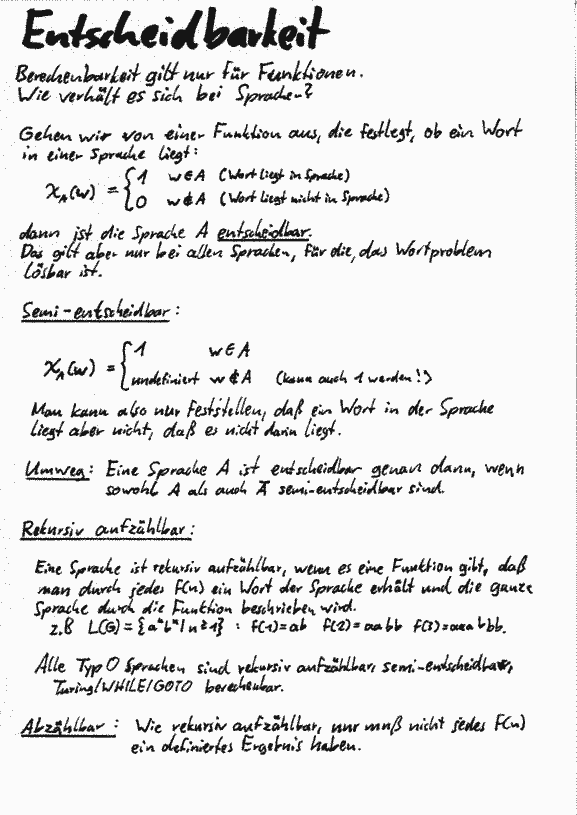 Entscheidbarkeit
Berechenbarkeit gilt nur für Funktionen.
Wie verhält es sich bei Sprachen?
Gehen wir von einer Funktion aus, die festlegt, ob ein Wort
in einer Sprache liegt:
χ_A(w) = { 1 w ∈ A (Wort liegt in Sprache)
0 w ∉ A (Wort liegt nicht in Sprache)
dann ist die Sprache A entscheidbar.
Das gilt aber nur bei allen Sprachen, für die, das Wortproblem
lösbar ist.
Semi-entscheidbar:
χ_A(w) = { 1 w ∈ A
undefiniert w ∉ A (kann auch 1 werden!)
Man kann also nur feststellen, daß ein Wort in der Sprache
liegt aber nicht, daß es nicht darin liegt.
Umweg: Eine Sprache A ist entscheidbar genau dann, wenn
sowohl A als auch Ā semi-entscheidbar sind.
Rekursiv aufzählbar:
Eine Sprache ist rekursiv aufzählbar, wenn es eine Funktion gibt, daß
man durch jedes f(n) ein Wort der Sprache erhält und die ganze
Sprache durch die Funktion beschrieben wird.
z.B L(G) = {aⁿbⁿ | n ≥ 1} : f(1)=ab f(2)=aabb f(3)=aaabbb.
Alle Typ 0 Sprachen sind rekursiv aufzählbar, semi-entscheidbar,
Turing/WHILE/GOTO berechenbar.
Abzählbar: Wie rekursiv aufzählbar, nur muß nicht jedes f(n)
ein definiertes Ergebnis haben.